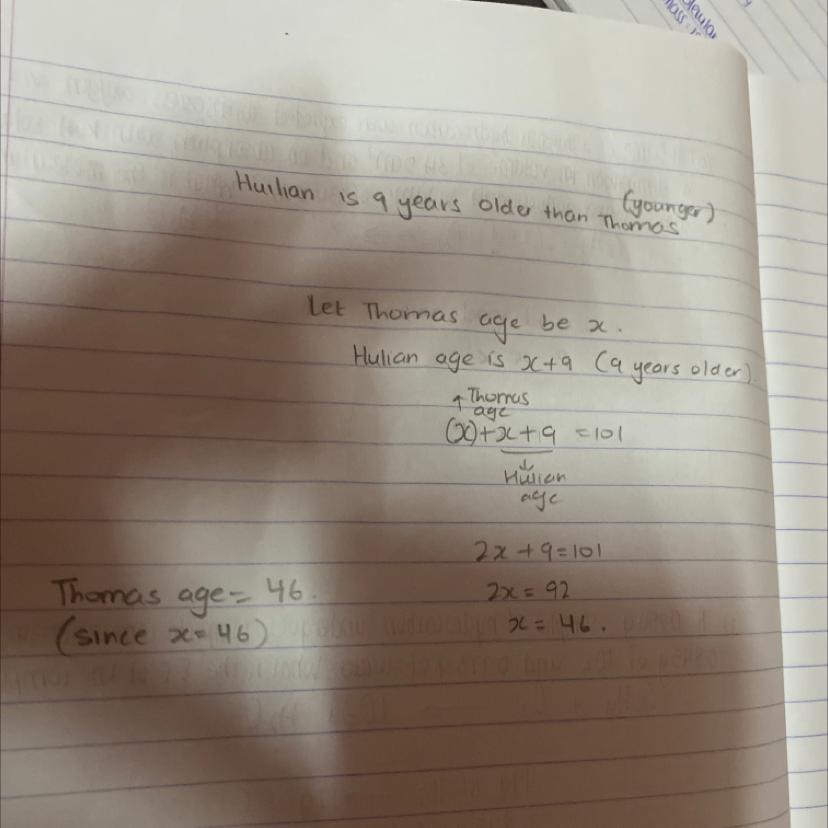 Huilian is 9 years older than Thomas
(younger)
Let Thomas age be x.
Hulian age is x+9 (9 years older)
↑ Thomas
age
(x)+x+9 = 101
↓
Hulian
age
2x + 9 = 101
2x = 92
x = 46.
Thomas age = 46.
(since x = 46)